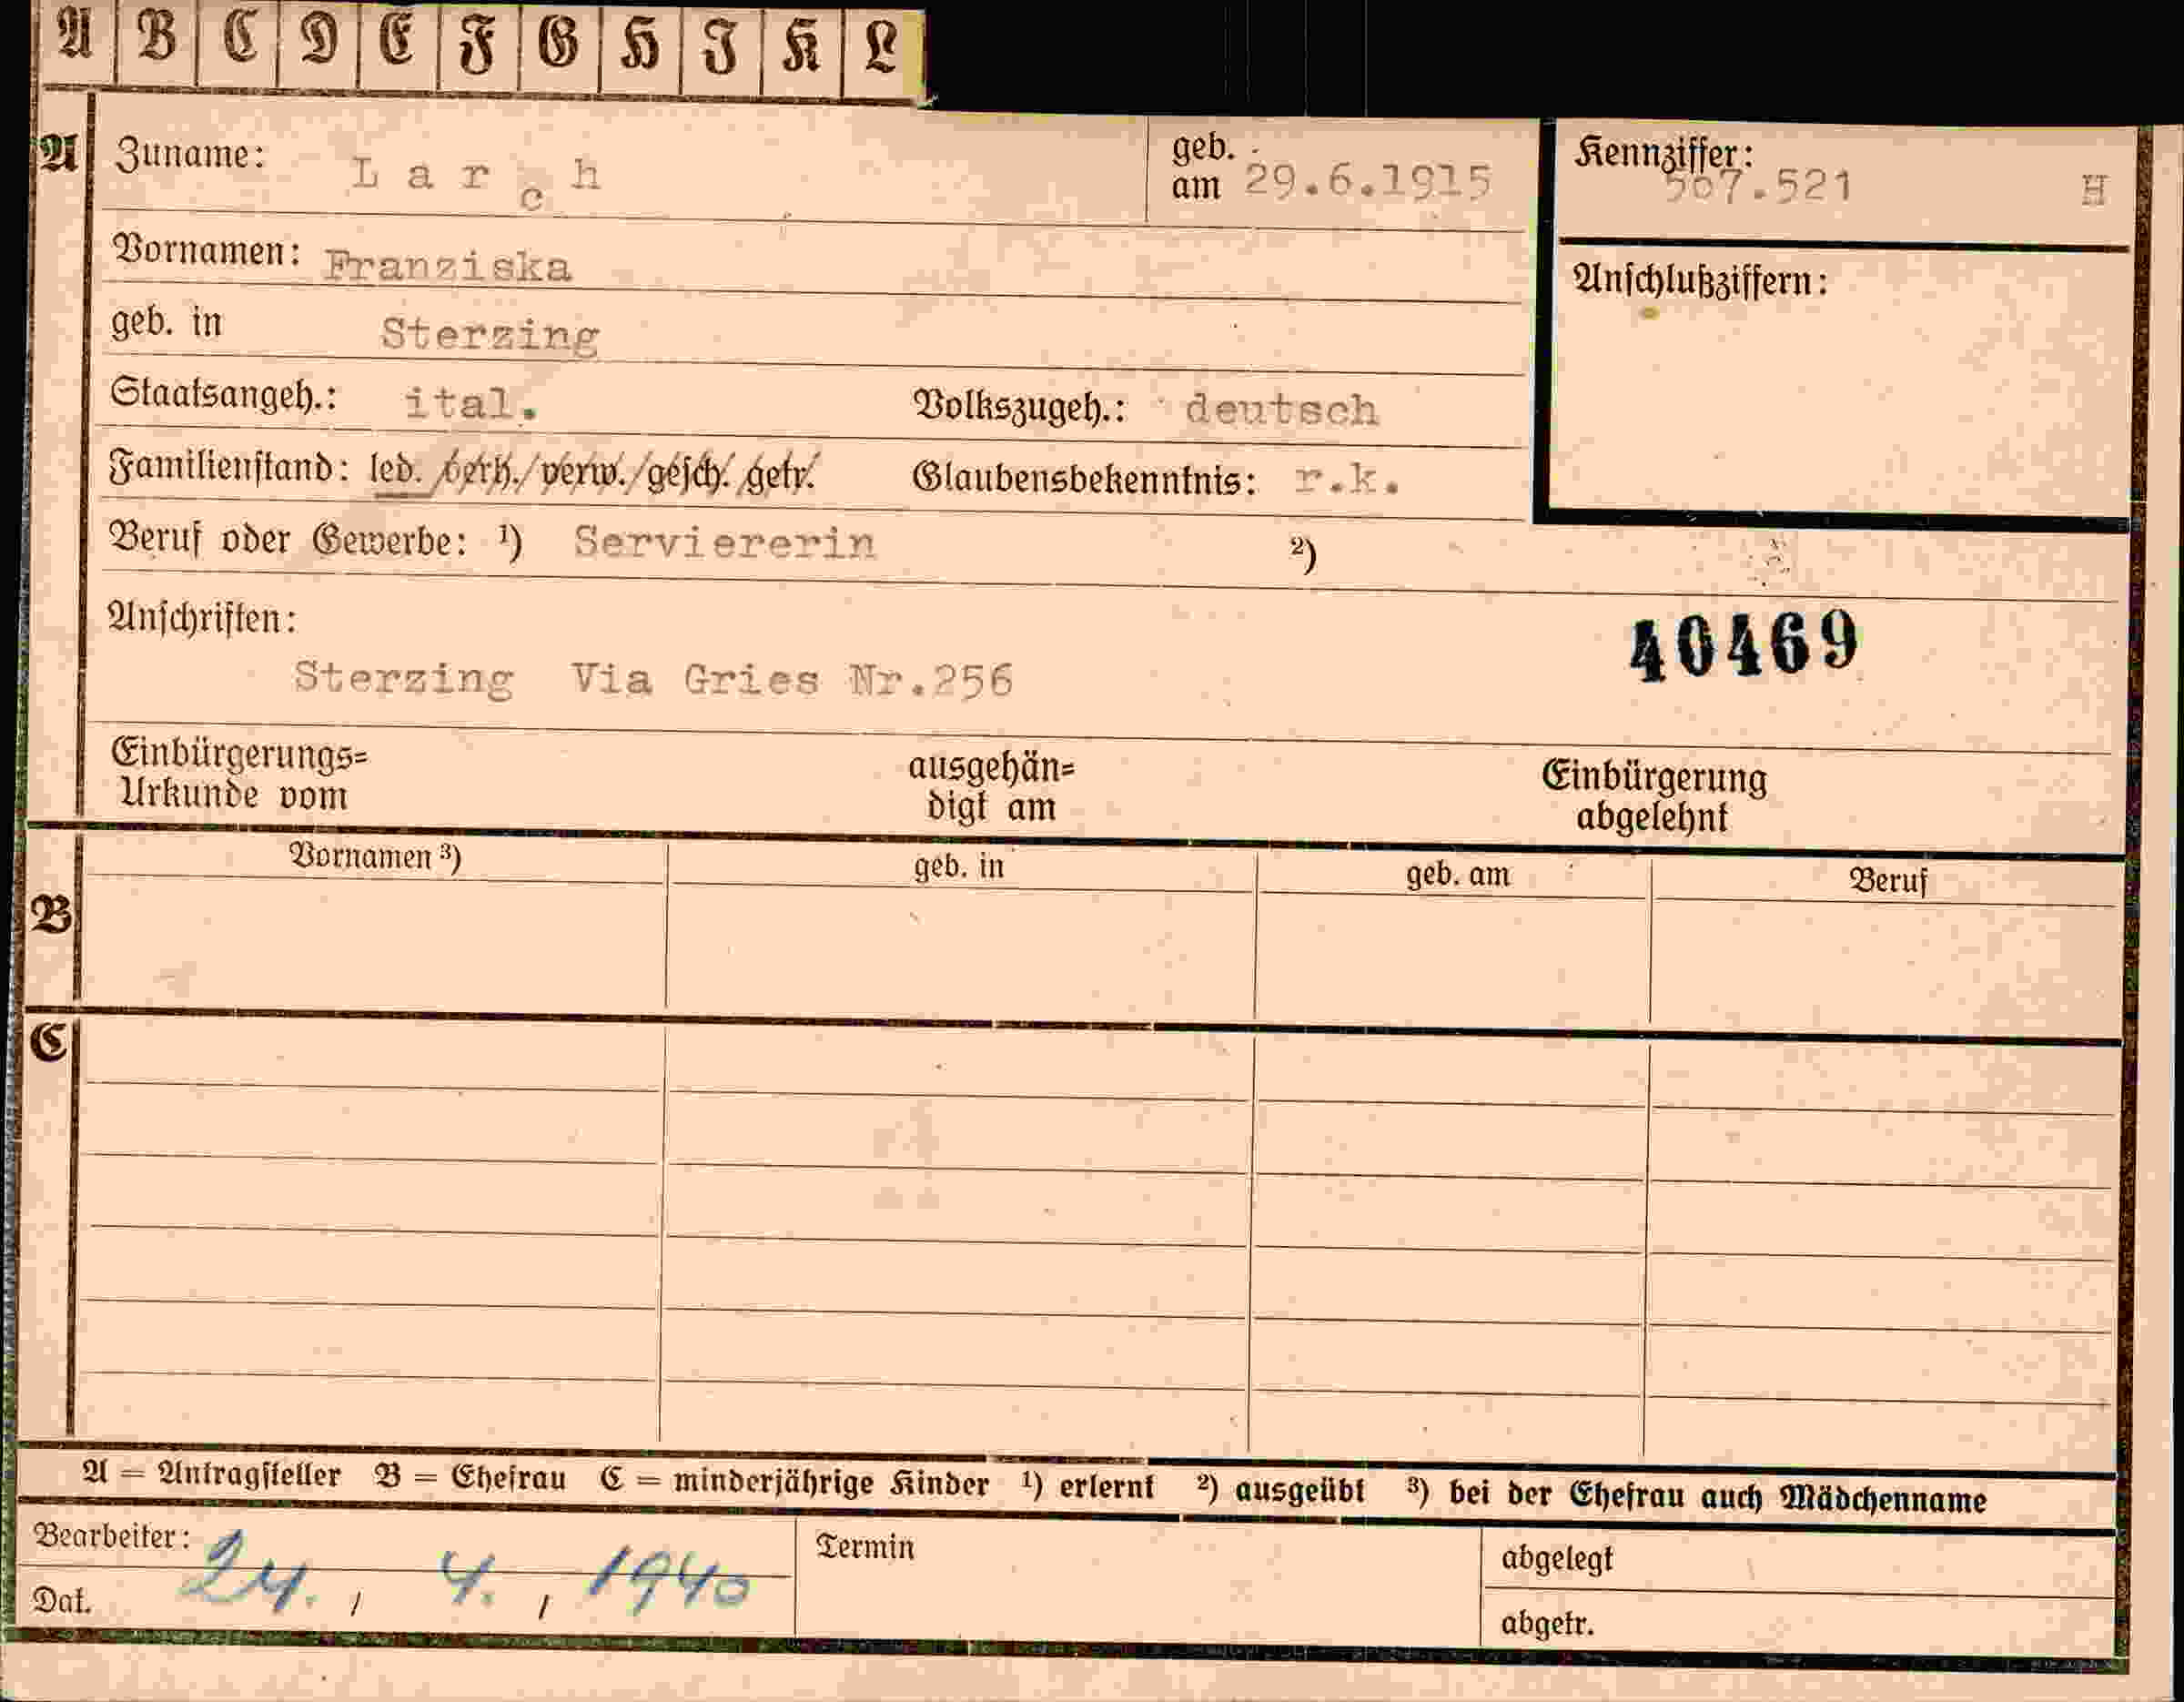 A B C D E F G H I K L
A Zuname: Larch geb. am 29.6.1915 Kennziffer: 507.521 H
Vornamen: Franziska Anschlußziffern:
geb. in Sterzing
Staatsangeh.: ital. Volkszugeh.: deutsch
Familienstand: led. /verh./verw./gesch. getr. Glaubensbekenntnis: r.k.
Beruf oder Gewerbe: ¹) Serviererin ²)
Anschriften:
40469
Sterzing Via Gries Nr.256
Einbürgerungs= ausgehän= Einbürgerung
Urkunde vom digt am abgelehnt
B Vornamen ³) geb. in geb. am Beruf
C
A = Antragsteller B = Ehefrau C = minderjährige Kinder ¹) erlernt ²) ausgeübt ³) bei der Ehefrau auch Mädchenname
Bearbeiter: Termin abgelegt
Dat. 24. / 4. / 1940 abgetr.